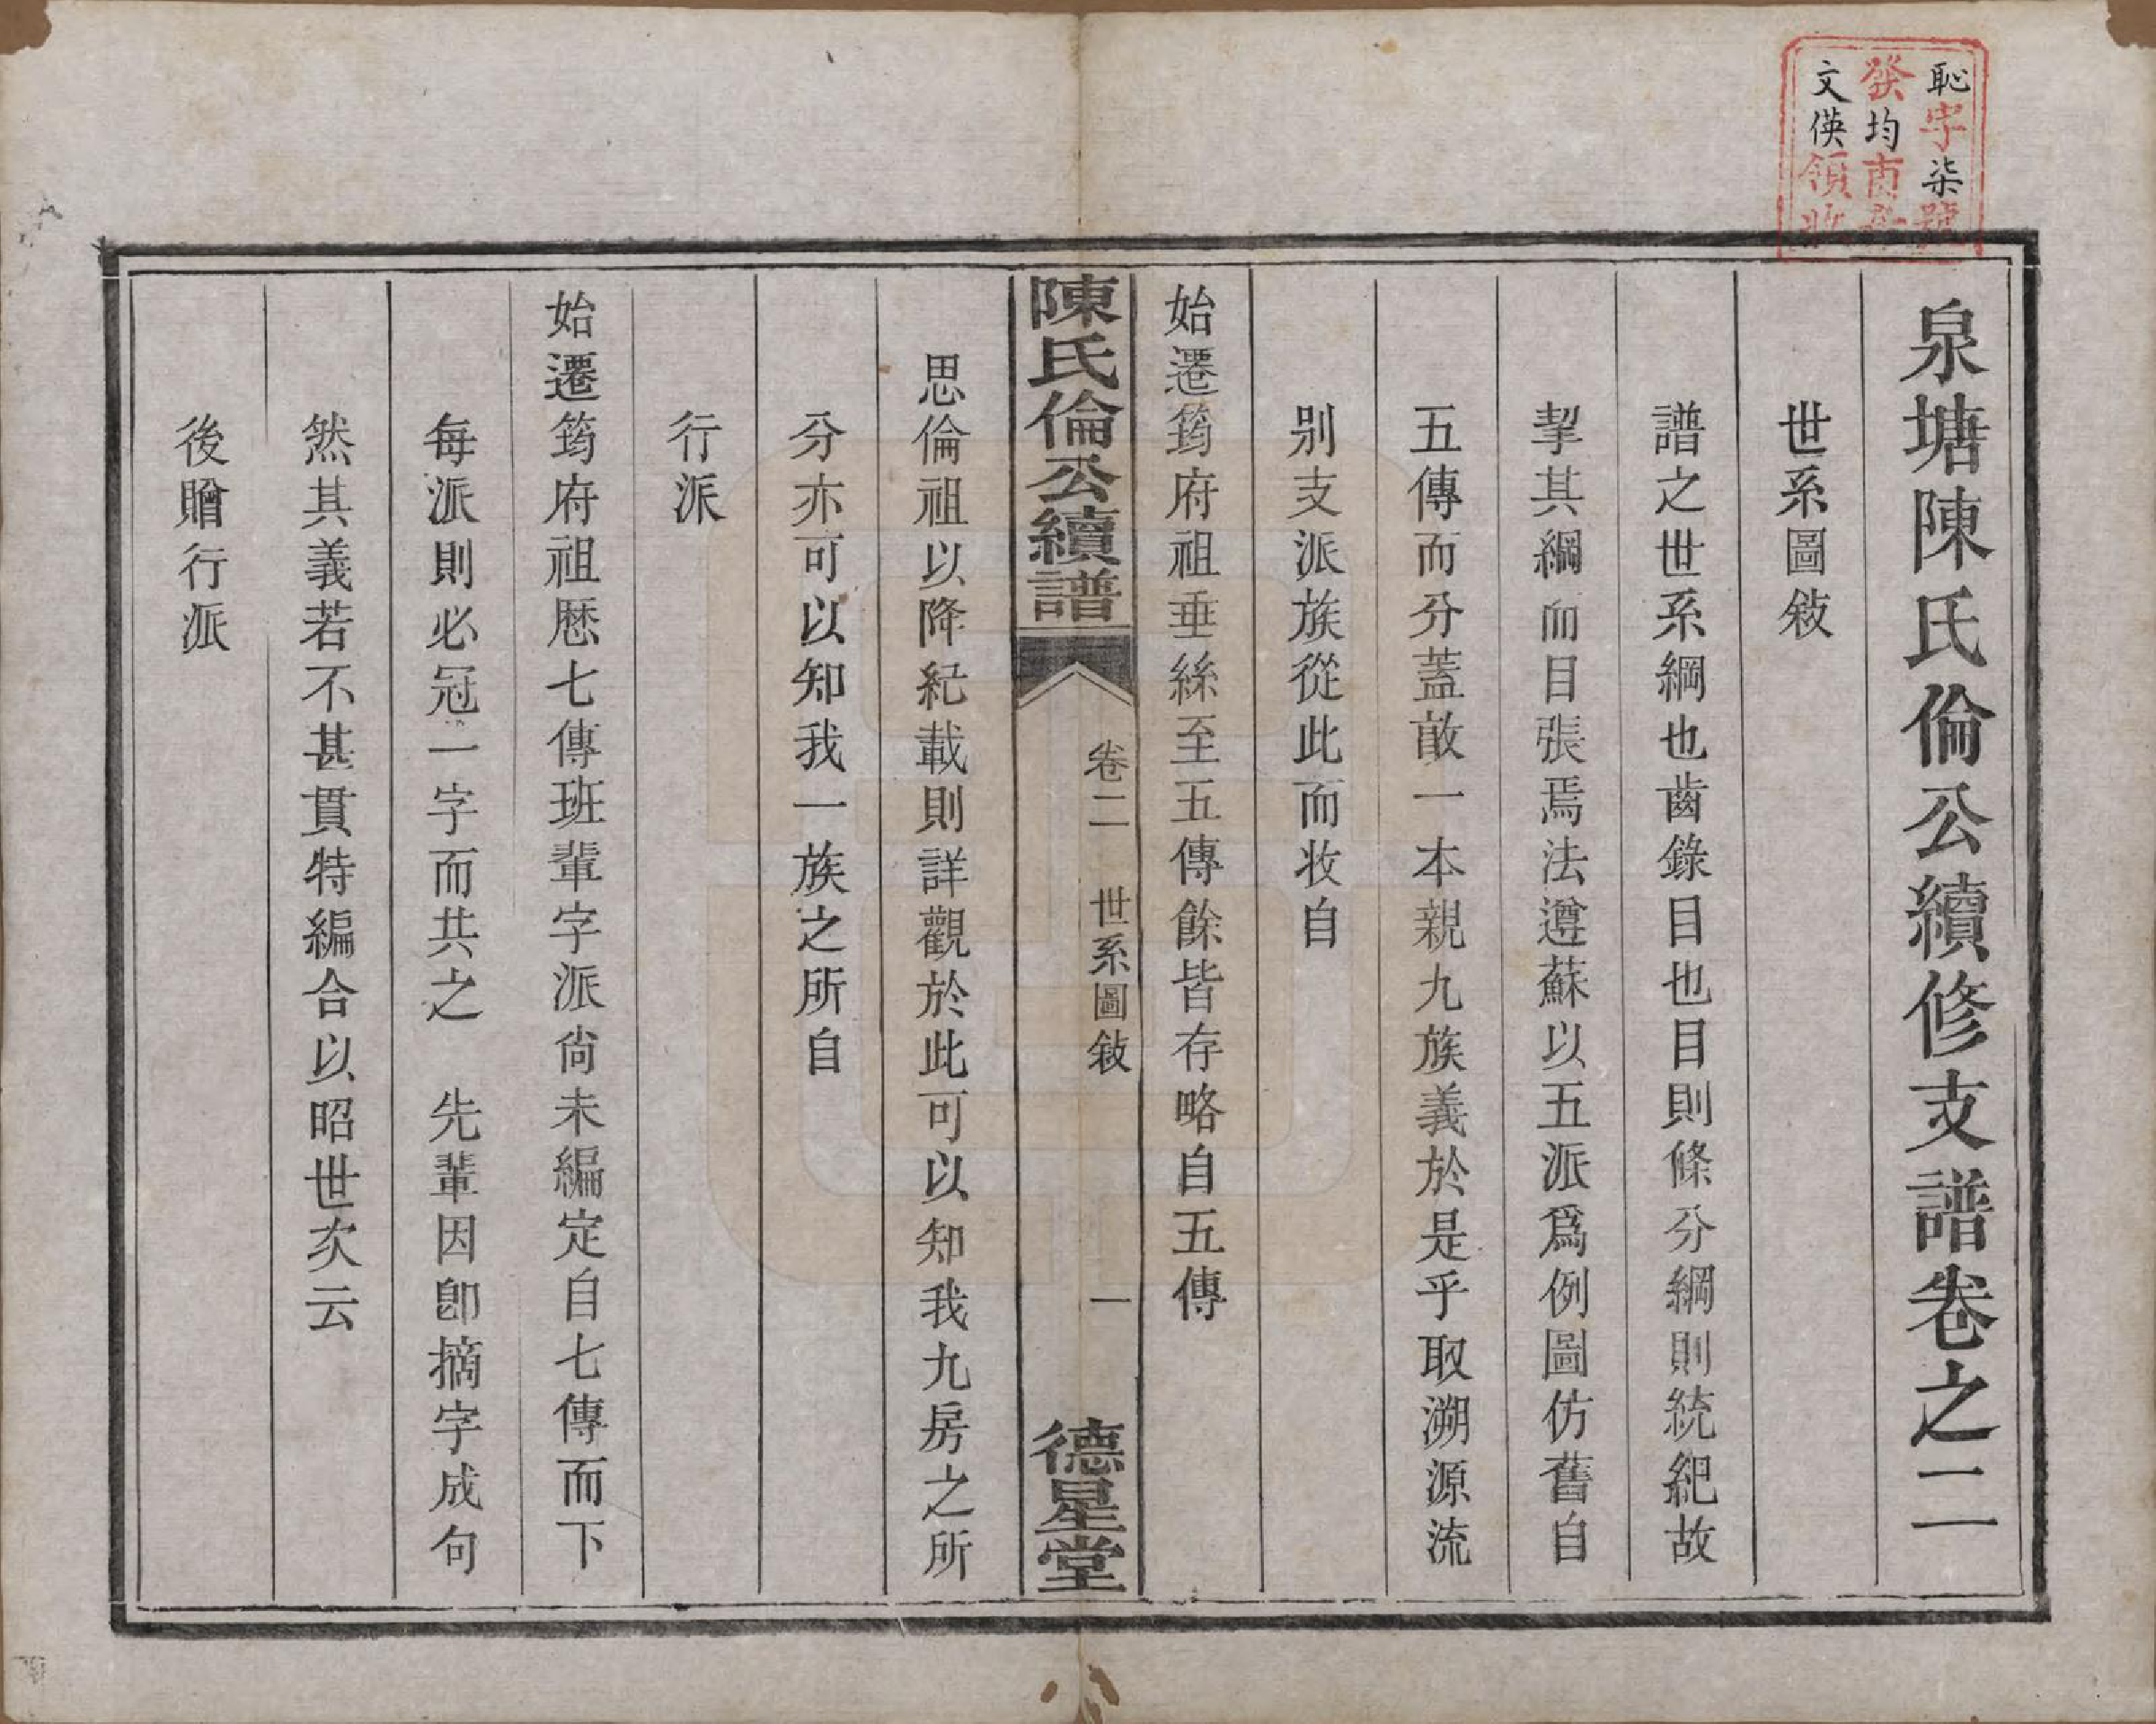 恥字柒號
發均
文偀領收
泉塘陳氏倫公續修支譜卷之二
世系圖敍
譜之世系綱也齒錄目也目則條分綱則統紀故
挈其綱而目張焉法遵蘇以五派爲例圖仿舊自
五傳而分蓋敢一本親九族義於是乎取溯源流
别支派族從此而收自
始遷筠府祖垂絲至五傳餘皆存略自五傳
陳氏倫公續譜
卷二 世系圖敍
一
德星堂
思倫祖以降紀載則詳觀於此可以知我九房之所
分亦可以知我一族之所自
行派
始遷筠府祖厯七傳班輩字派尙未編定自七傳而下
每派則必冠一字而共之 先輩因卽摘字成句
然其義若不甚貫特編合以昭世次云
後贈行派